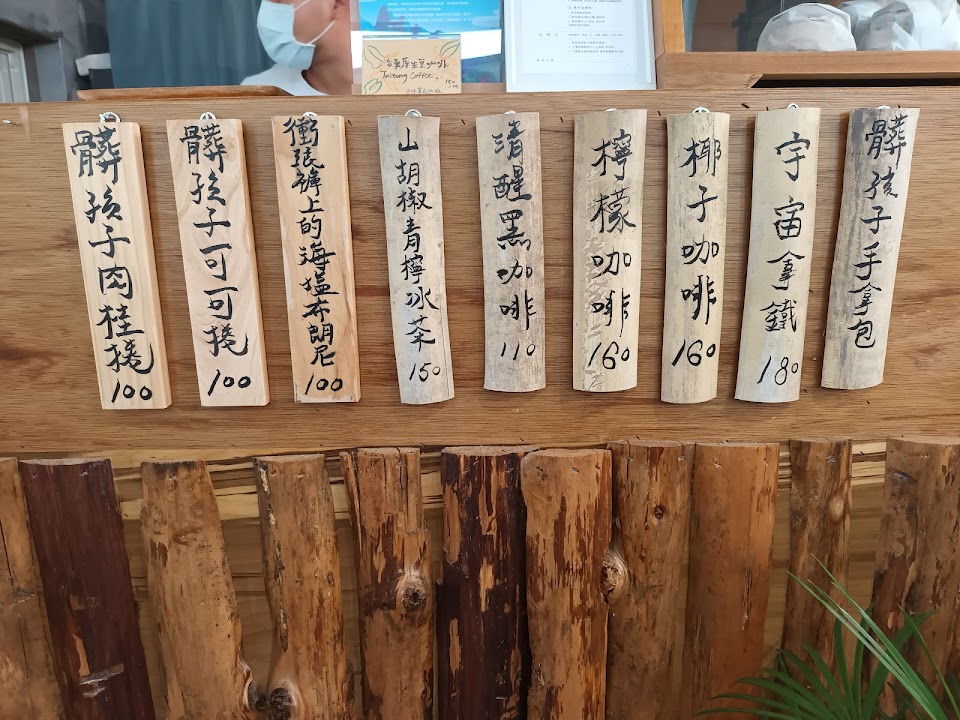 台東原生豆咖啡
Taitung Coffee.
髒孩子肉桂捲
100
髒孩子可可捲
100
衝浪褲上的海塩布朗尼
100
山胡椒青檸冰茶
150
清醒黑咖啡
110
檸檬咖啡
160
椰子咖啡
160
宇宙拿鐵
180
髒孩子手拿包